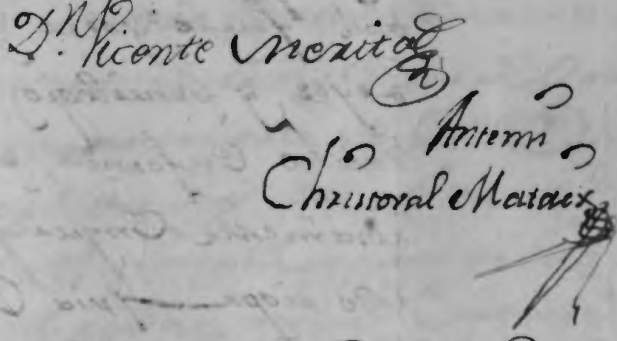 Dn. Vicente Merita
Antemi
Christoval Mataix